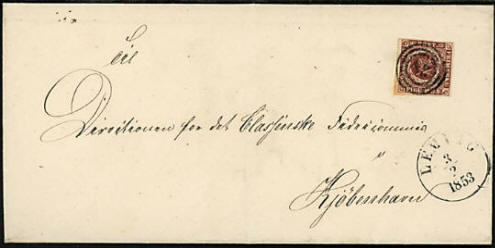 Til
Directionen for det Classenske Fideicommis
Kjöbenhavn
3
2
1853